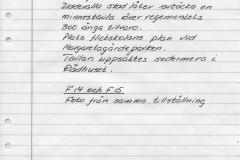 Uddevalla stad låter avtäcka en
minnestavla över regementets
300 åriga tillvaro.
Plats flickskolans plan vid
Margaretagärdeparken.
Tavlan uppsattes sedermera i
Rådhuset.
F 14 och F 15
Foto från samma tillställning